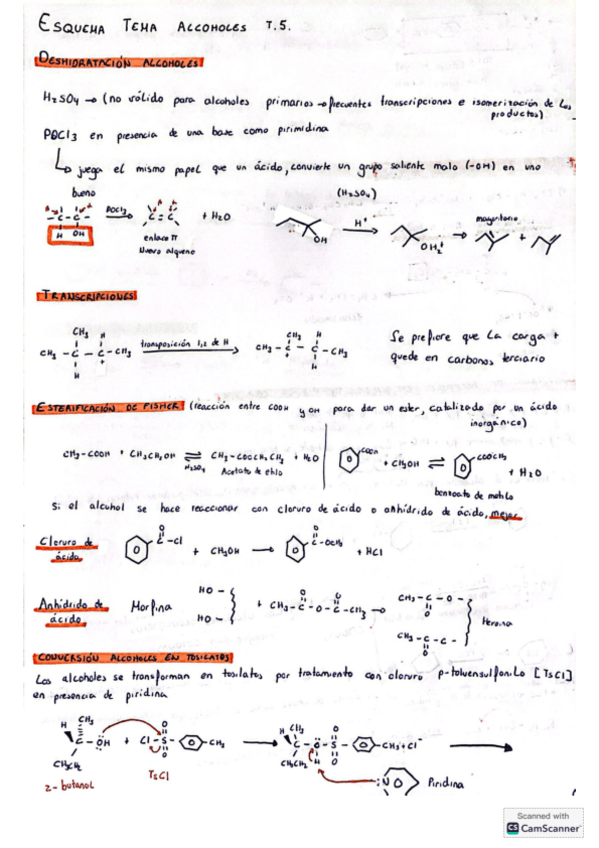 ESQUEMA TEMA ALCOHOLES T.5.
DESHIDRATACIÓN ALCOHOLES
H₂SO₄ → (no válido para alcoholes primarios → frecuentes transcripciones e isomerización de los productos)
POCl₃ en presencia de una base como pirimidina
juega el mismo papel que un ácido, convierte un grupo saliente malo (-OH) en uno bueno
(H₂SO₄)
-C-C- POCl₃ C=C + H₂O
H OH
enlace π
Nuevo alqueno
OH H⁺ OH₂⁺ mayoritario +
TRANSCRIPCIONES
CH₃ H
CH₃ - C - C - CH₃ transposición 1,2 de H CH₃ - C - C - CH₃
+
H
CH₃ H
+ H
Se prefiere que la carga +
quede en carbonos terciario
ESTERIFICACIÓN DE FISHER (reacción entre COOH y OH para dar un ester, catalizada por un ácido inorgánico)
CH₃-COOH + CH₃CH₂OH ⇌ CH₃-COOCH₂CH₃ + H₂O
H₂SO₄ Acetato de etilo
COOH + CH₃OH ⇌ COOCH₃ + H₂O
benzoato de metilo
Si el alcohol se hace reaccionar con cloruro de ácido o anhídrido de ácido, mejor
Cloruro de ácido
O
C-Cl + CH₃OH → C-OCH₃ + HCl
O
Anhídrido de ácido
Morfina
HO -
HO -
+ CH₃-C-O-C-CH₃ →
O O
CH₃-C-O-
O
CH₃-C-C-
O
Heroína
CONVERSIÓN ALCOHOLES EN TOSILATOS
Los alcoholes se transforman en tosilatos por tratamiento con cloruro p-toluensulfonilo [TsCl]
en presencia de piridina
H CH₃
C - OH + Cl - S - CH₃ →
O
O
CH₃CH₂
2-butanol
TsCl
H CH₃
C - O - S - CH₃ + Cl⁻ →
O
H O
CH₃CH₂
:N Piridina
Scanned with
CS CamScanner